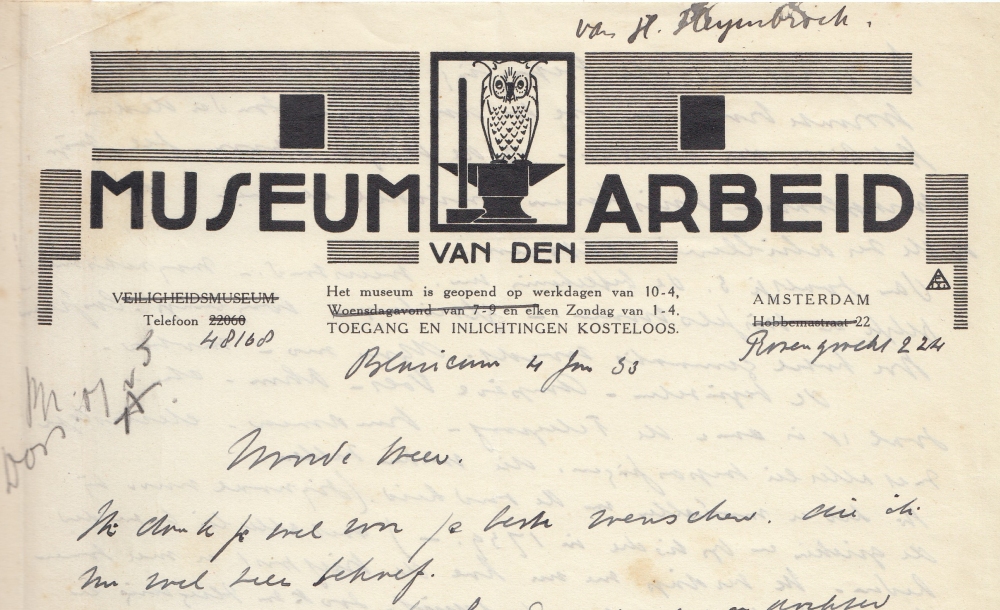 van H. Heyenbrock.
MUSEUM ARBEID
VAN DEN
VEILIGHEIDSMUSEUM
Telefoon 22060
48168
Het museum is geopend op werkdagen van 10-4,
Woensdagavond van 7-9 en elken Zondag van 1-4.
TOEGANG EN INLICHTINGEN KOSTELOOS.
AMSTERDAM
Hobbemastraat 22
Rozengracht 224
Blaricum 4 Jan 33
Ik dank je wel voor je beste wenschen. die ik
nu wel zeer behoef.
dochter